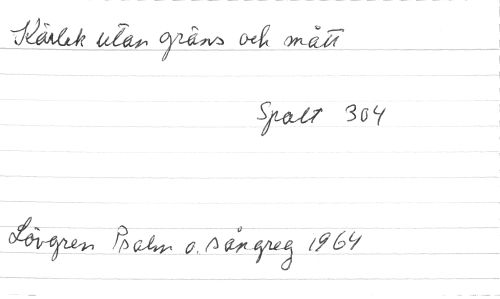 Kärlek utan gräns och mått
Spalt 304
Lövgren Psalm o. sångreg 1964